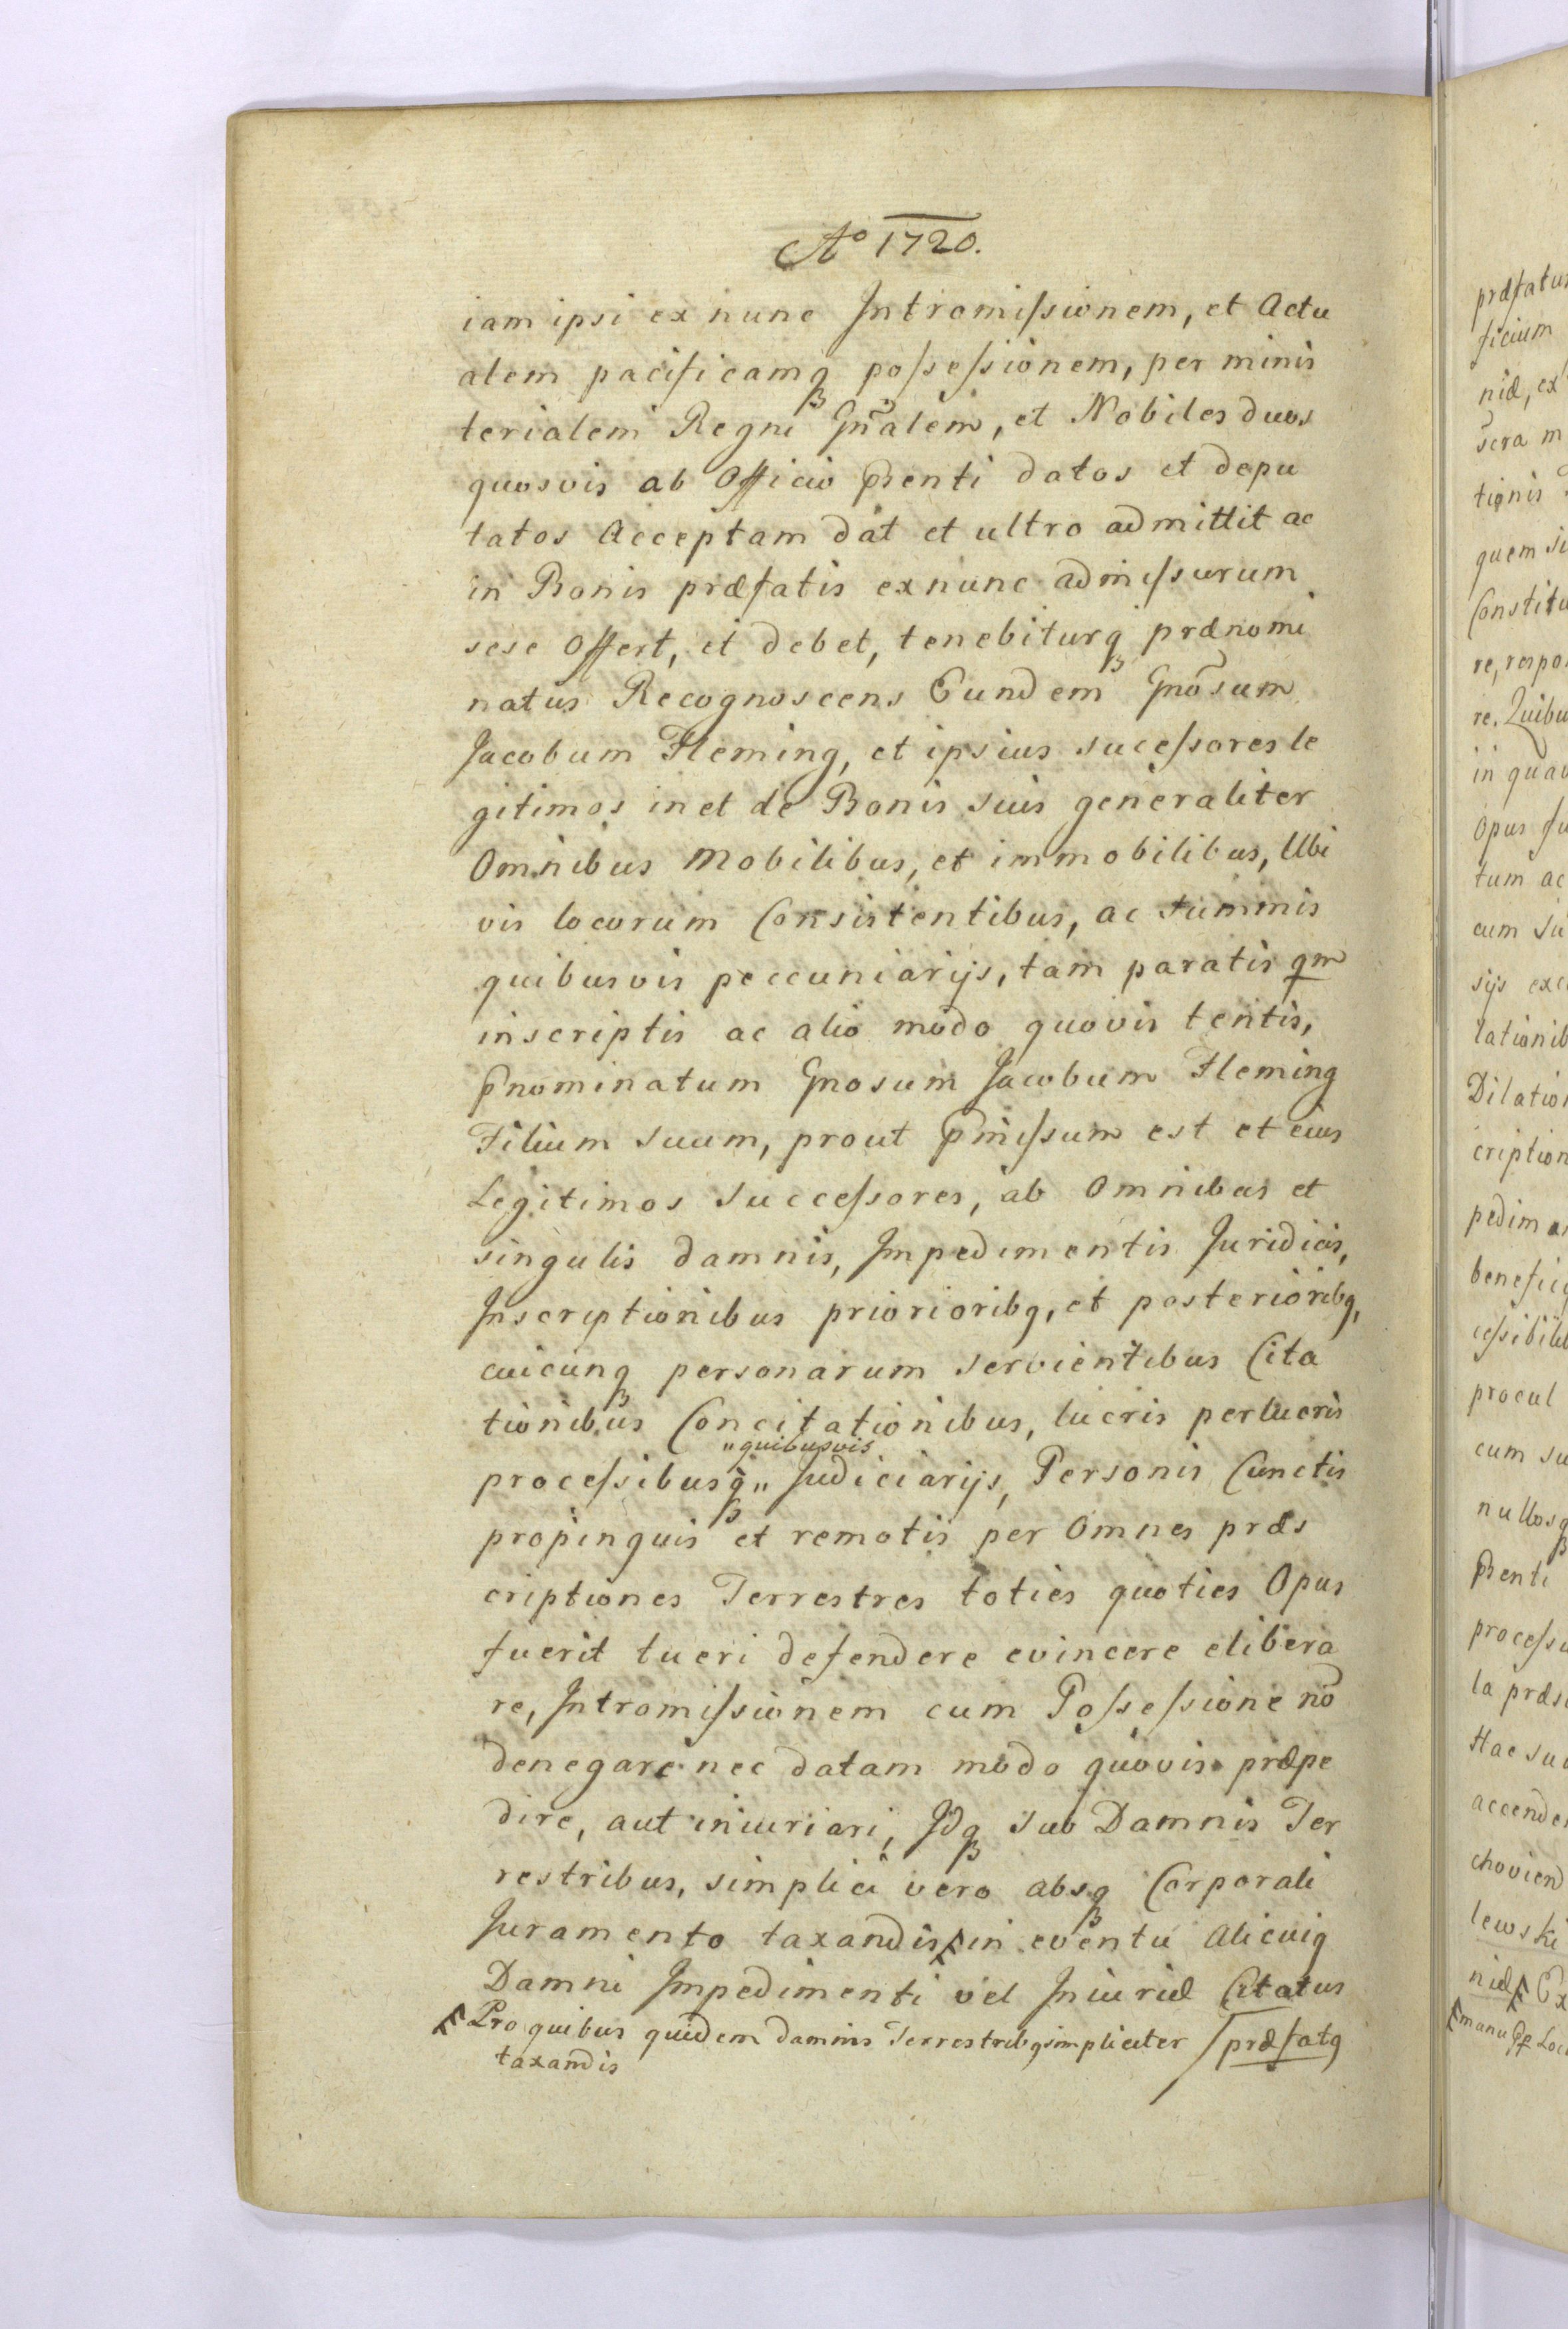 Aº 1720.
iam ipsi ex nunc Intromiſsionem, et Actu
alem pacificamq poſseſsionem, per minis
terialem Regni Gn̄alem, et Nobiles duos
quosvis ab Officio P̄nti datos et depu
tatos Acceptam dat et ultro admittit ac
in Bonis præfatis ex nunc admiſsurum
sese Offert, et debet, tenebiturq prænomi
natus Recognoscens Eundem Gnōsum
Jacobum Fleming, et ipsius suceſsores le
gitimos in et de Bonis suis generaliter
Omnibus Mobilibus, et immobilibus, Ubi
vis locorum Consistentibus, ac summis
quibusvis peccuniarijs, tam paratis qm
inscriptis ac alio modo quovis tentis,
P̄nominatum Gnosum Jacobum Fleming
Filium suum, prout P̄miſsum est et eius
Legitimos Succeſsores, ab Omnibus et
singulis damnis, Impedimentis Juridicis,
Inscriptionibus prioribribq, et posterioribq,
cuicunq personarum servientibus Cita
tionibus Concitationibus, lucris perlucris
„quibusvis
proceſsibusq„ Judiciarijs, Personis Cunctis
propinquis et remotis per Omnes præs
criptiones Terrestres toties quoties Opus
fuerit tueri defendere evincere elibera
re, Intromiſsionem cum Poſseſsione nō
denegare nec datam modo quovis præpe
dire, aut iniuriari, Idq sub Damnis Ter
restribus, simplici vero absq Corporali
Juramento taxandis in eventu Alicuiq
Damni Impedimenti vel Iniuriæ Citatus
Pro quibus quidem damnis Terrestribq simpliciter præfatq
taxandis
præfatus
ficium
niæ, ex
sera m
tionis
quem si
Constitu
re, respo
re. Quibu
in quav
Opus fu
tum ac
cum su
sijs exc
lationib
Dilation
cription
pedim
benefici
ceſsibilib
procul
cum su
nullosq
P̄nti
proceſsu
la præs
Hac su
accende
choviend
lewski
niæ Ex
manu Loc